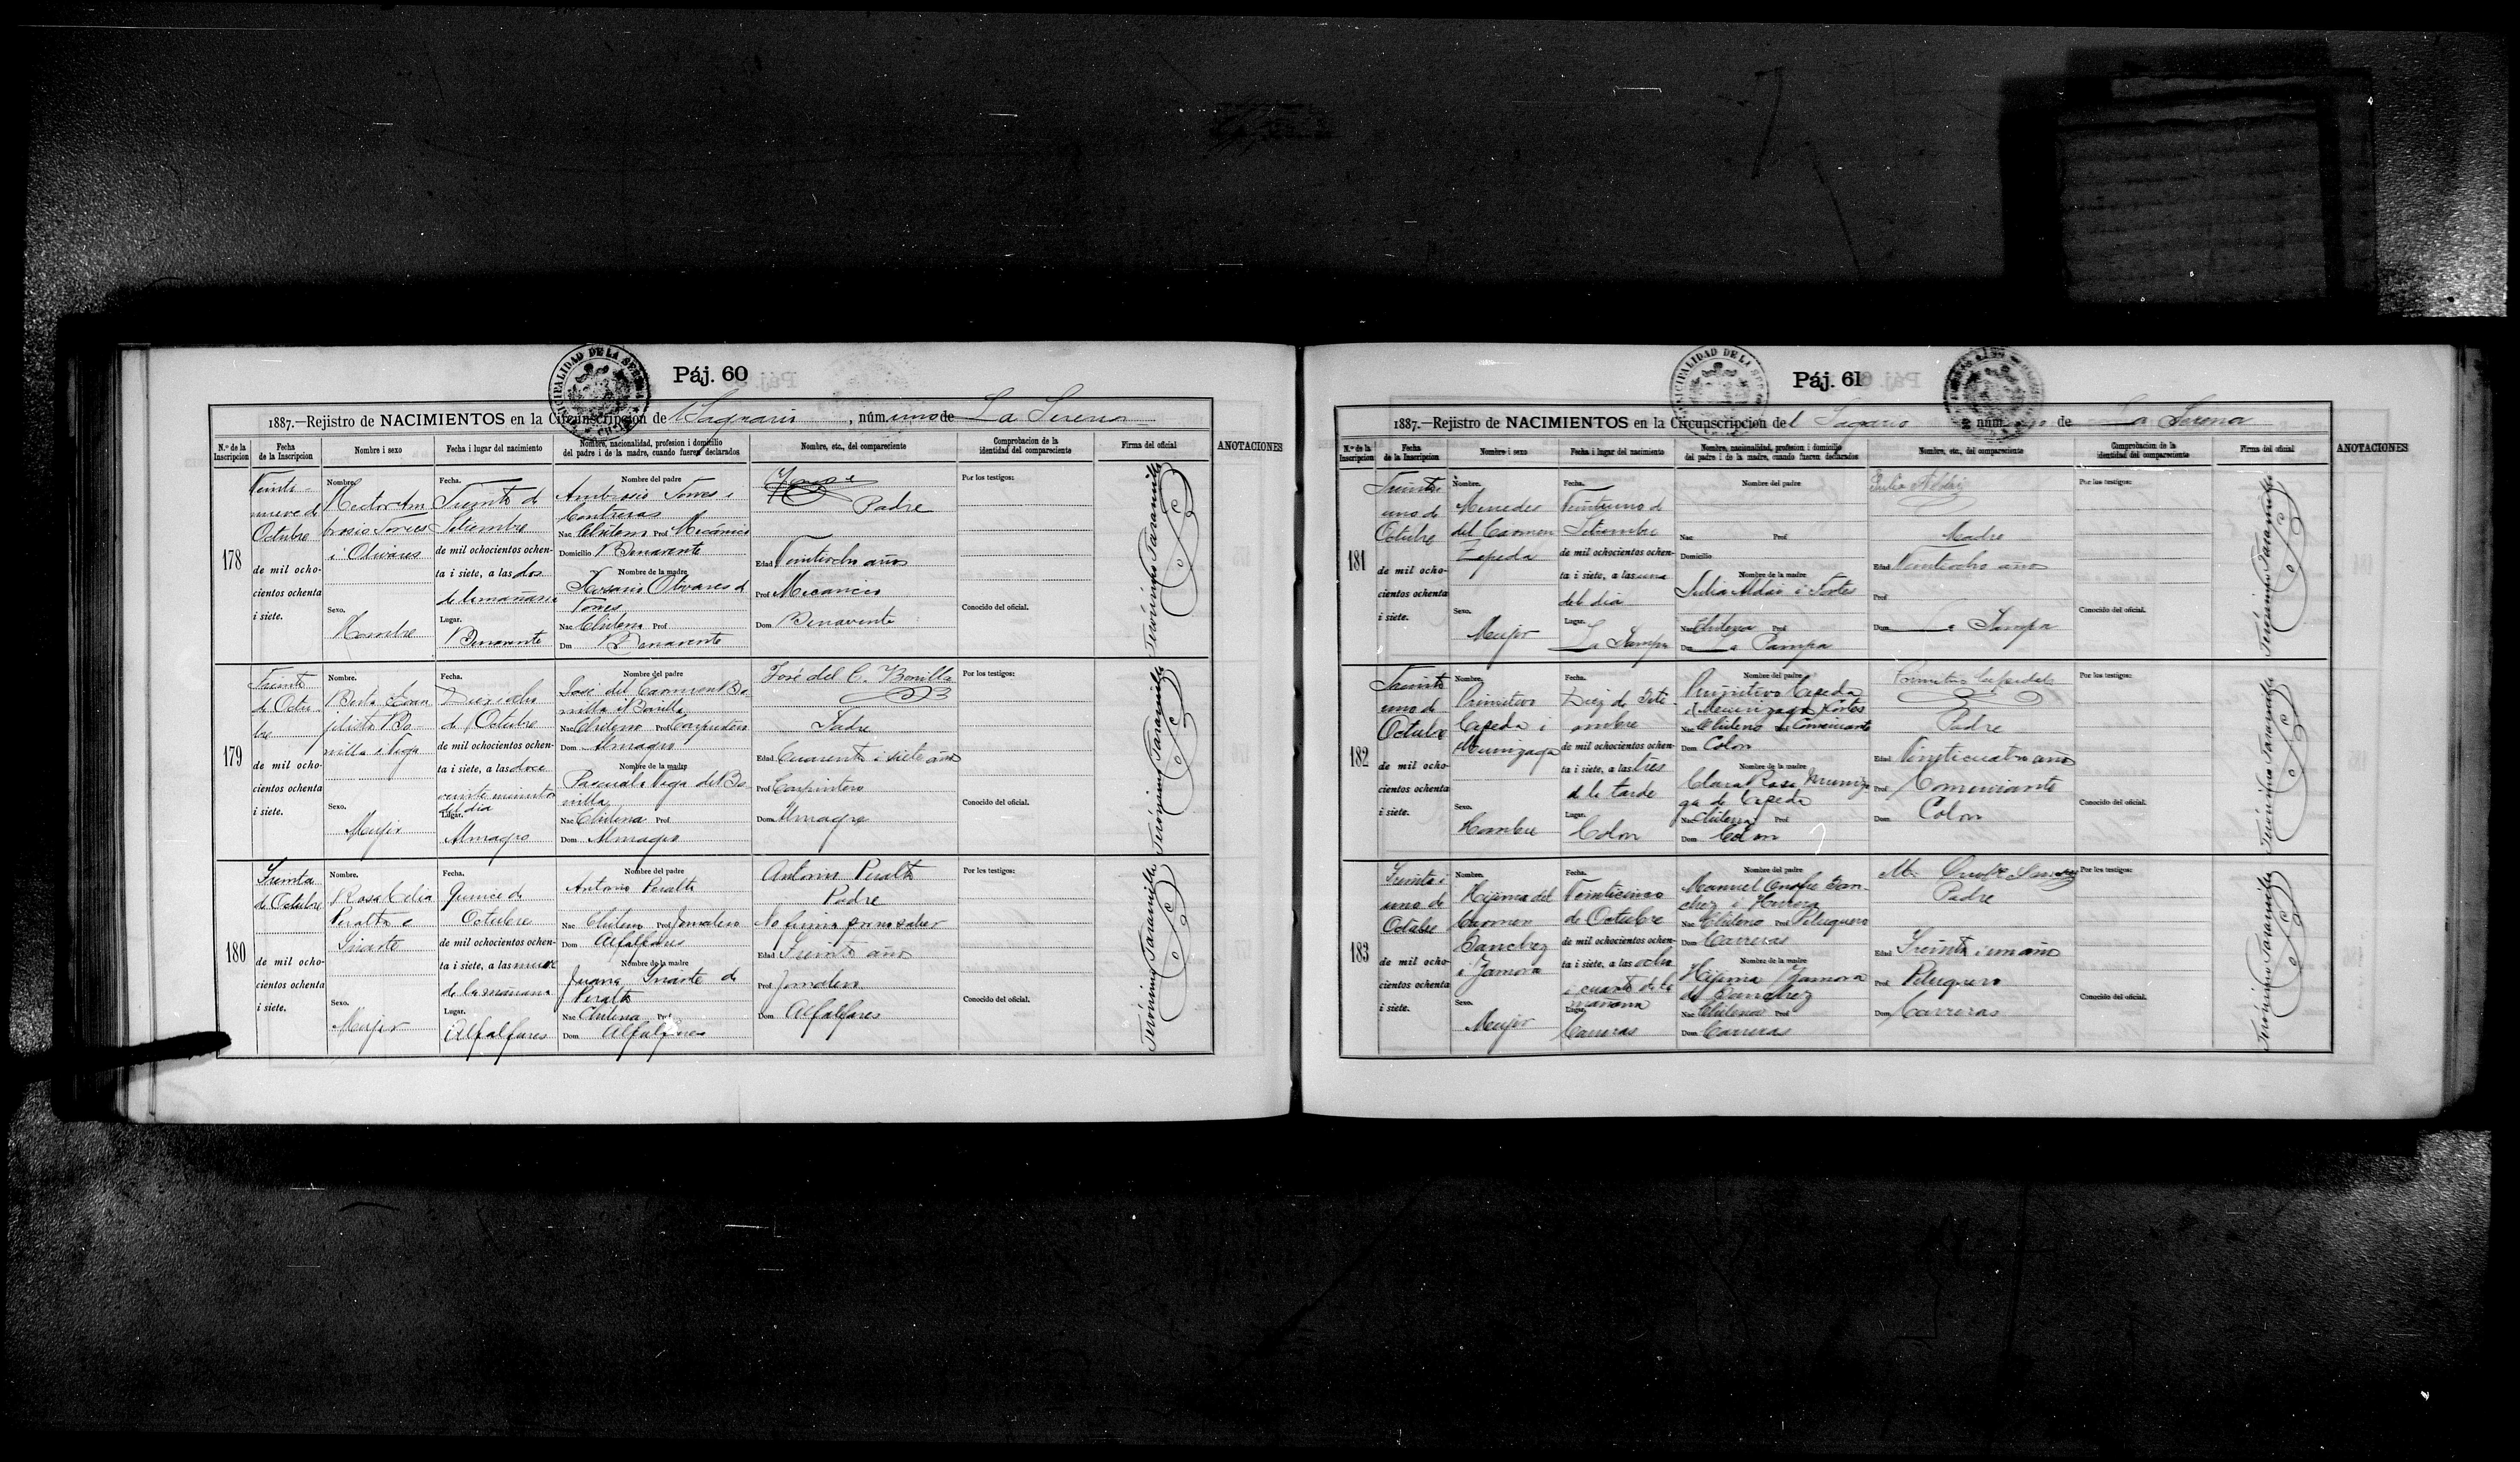 Páj. 60
1887.—Rejistro de NACIMIENTOS en la Circunscripcion del Sagrario, núm uno de La Serena
N.º de la Inscripcion
Fecha de la Inscripcion
Nombre i sexo
Fecha i lugar del nacimiento
Nombre, nacionalidad, profesion i domicilio del padre i de la madre, cuando fueren declarados
Nombre, etc., del compareciente
Comprobacion de la identidad del compareciente
Firma del oficial
ANOTACIONES
178
Veinti-
nueve de
Octubre
de mil ocho-
cientos ochenta
i siete.
Nombre.
Hector Am
brosio Torres
i Olivares
Sexo.
Hombre
Fecha.
Treinta de
Setiembre
de mil ochocientos ochen-
ta i siete, a las dos
de la mañana
Lugar.
Benavente
Nombre del padre
Ambrosio Torres i
Contreras
Nac Chileno Prof Mecánico
Domicilio Benavente
Nombre de la madre
Rosario Olivares de
Torres
Nac Chilena Prof
Dm Benavente
Padre
Edad Veintiocho años
Prof Mecanico
Dom Benavente
Por los testigos:
Conocido del oficial.
Jerónimo Jaramillo
179
Treinta
de Octu
bre
de mil ocho-
cientos ochenta
i siete.
Nombre.
Berta Evan
jelista Bo-
nilla i Vega
Sexo.
Mujer
Fecha.
Dieziocho
de Octubre
de mil ochocientos ochen-
ta i siete, a las doce
veinte minutos
del dia
Lugar.
Almagro
Nombre del padre
José del Carmen Bo
nilla i Bonilla
Nac Chileno Prof Carpintero
Dom Almagro
Nombre de la madre
Pascuala Vega de Bo
nilla
Nac Chilena Prof
Dom Almagro
José del C. Bonilla
Padre
Edad Cuarenta i siete años
Prof Carpintero
Dom Almagro
Por los testigos:
Conocido del oficial.
Jerónimo Jaramillo
180
Treinta
de Octubre
de mil ocho-
cientos ochenta
i siete.
Nombre.
Rosa Celia
Peralta e
Iriarte
Sexo.
Mujer
Fecha.
Quince de
Octubre
de mil ochocientos ochen-
ta i siete, a las nueve
de la mañana
Lugar.
Alfalfares
Nombre del padre
Antonio Peralta
Nac Chileno Prof Jornalero
Dom Alfalfares
Nombre de la madre
Juana Iriarte de
Peralta
Nac Chilena Prof
Dom Alfalfares
Antonio Peralta
Padre
No firma por no saber
Edad Treinta años
Prof Jornalero
Dom Alfalfares
Por los testigos:
Conocido del oficial.
Jerónimo Jaramillo
Páj. 61
1887.—Rejistro de NACIMIENTOS en la Circunscripcion del Sagrario núm uno de La Serena
N.º de la Inscripcion
Fecha de la Inscripcion
Nombre i sexo
Fecha i lugar del nacimiento
Nombre, nacionalidad, profesion i domicilio del padre i de la madre, cuando fueren declarados
Nombre, etc., del compareciente
Comprobacion de la identidad del compareciente
Firma del oficial
ANOTACIONES
181
Treinta i
uno de
Octubre
de mil ocho-
cientos ochenta
i siete.
Nombre.
Mercedes
del Carmen
Zepeda
Sexo.
Mujer
Fecha.
Veintiuno de
Setiembre
de mil ochocientos ochen-
ta i siete, a las una
del dia
Lugar.
La Pampa
Nombre del padre
Nac Prof
Domicilio
Nombre de la madre
Julia Aldai i
Nac Chilena Prof
Dom La Pampa
Julia Aldai
Madre
Edad Veintiocho años
Prof
Dom La Pampa
Por los testigos:
Conocido del oficial.
Jerónimo Jaramillo
182
Treinta
uno de
Octubre
de mil ocho-
cientos ochenta
i siete.
Nombre.
Primitivo
Cepeda i
Munizaga
Sexo.
Hombre
Fecha.
Diez de Seti-
embre
de mil ochocientos ochen-
ta i siete, a las tres
de la tarde
Lugar.
Colon
Nombre del padre
Primitivo Cepeda
Nac Chileno Comerciante
Dom Colon
Nombre de la madre
Clara Rosa Muniza
ga de Cepeda
Nac Chilena Prof
Dom Colon
Padre
Edad Veinticuatro años
Prof Comerciante
Dom Colon
Por los testigos:
Conocido del oficial.
Jerónimo Jaramillo
183
Treinta i
uno de
Octubre
de mil ocho-
cientos ochenta
i siete.
Nombre.
Hijinia del
Carmen
Sanchez
i Zamora
Sexo.
Mujer
Fecha.
Veinticinco
de Octubre
de mil ochocientos ochen-
ta i siete, a las ocho
i cuarto de la
mañana
Lugar.
Carreras
Nombre del padre
Manuel Onofre San-
chez i Herrera
Nac Chileno Prof Peluquero
Dom Carreras
Nombre de la madre
Hijinia Zamora
de Sanchez
Nac Chilena Prof
Dom Carreras
Padre
Edad Treinta i un años
Prof Peluquero
Dom Carreras
Por los testigos:
Conocido del oficial.
Jerónimo Jaramillo